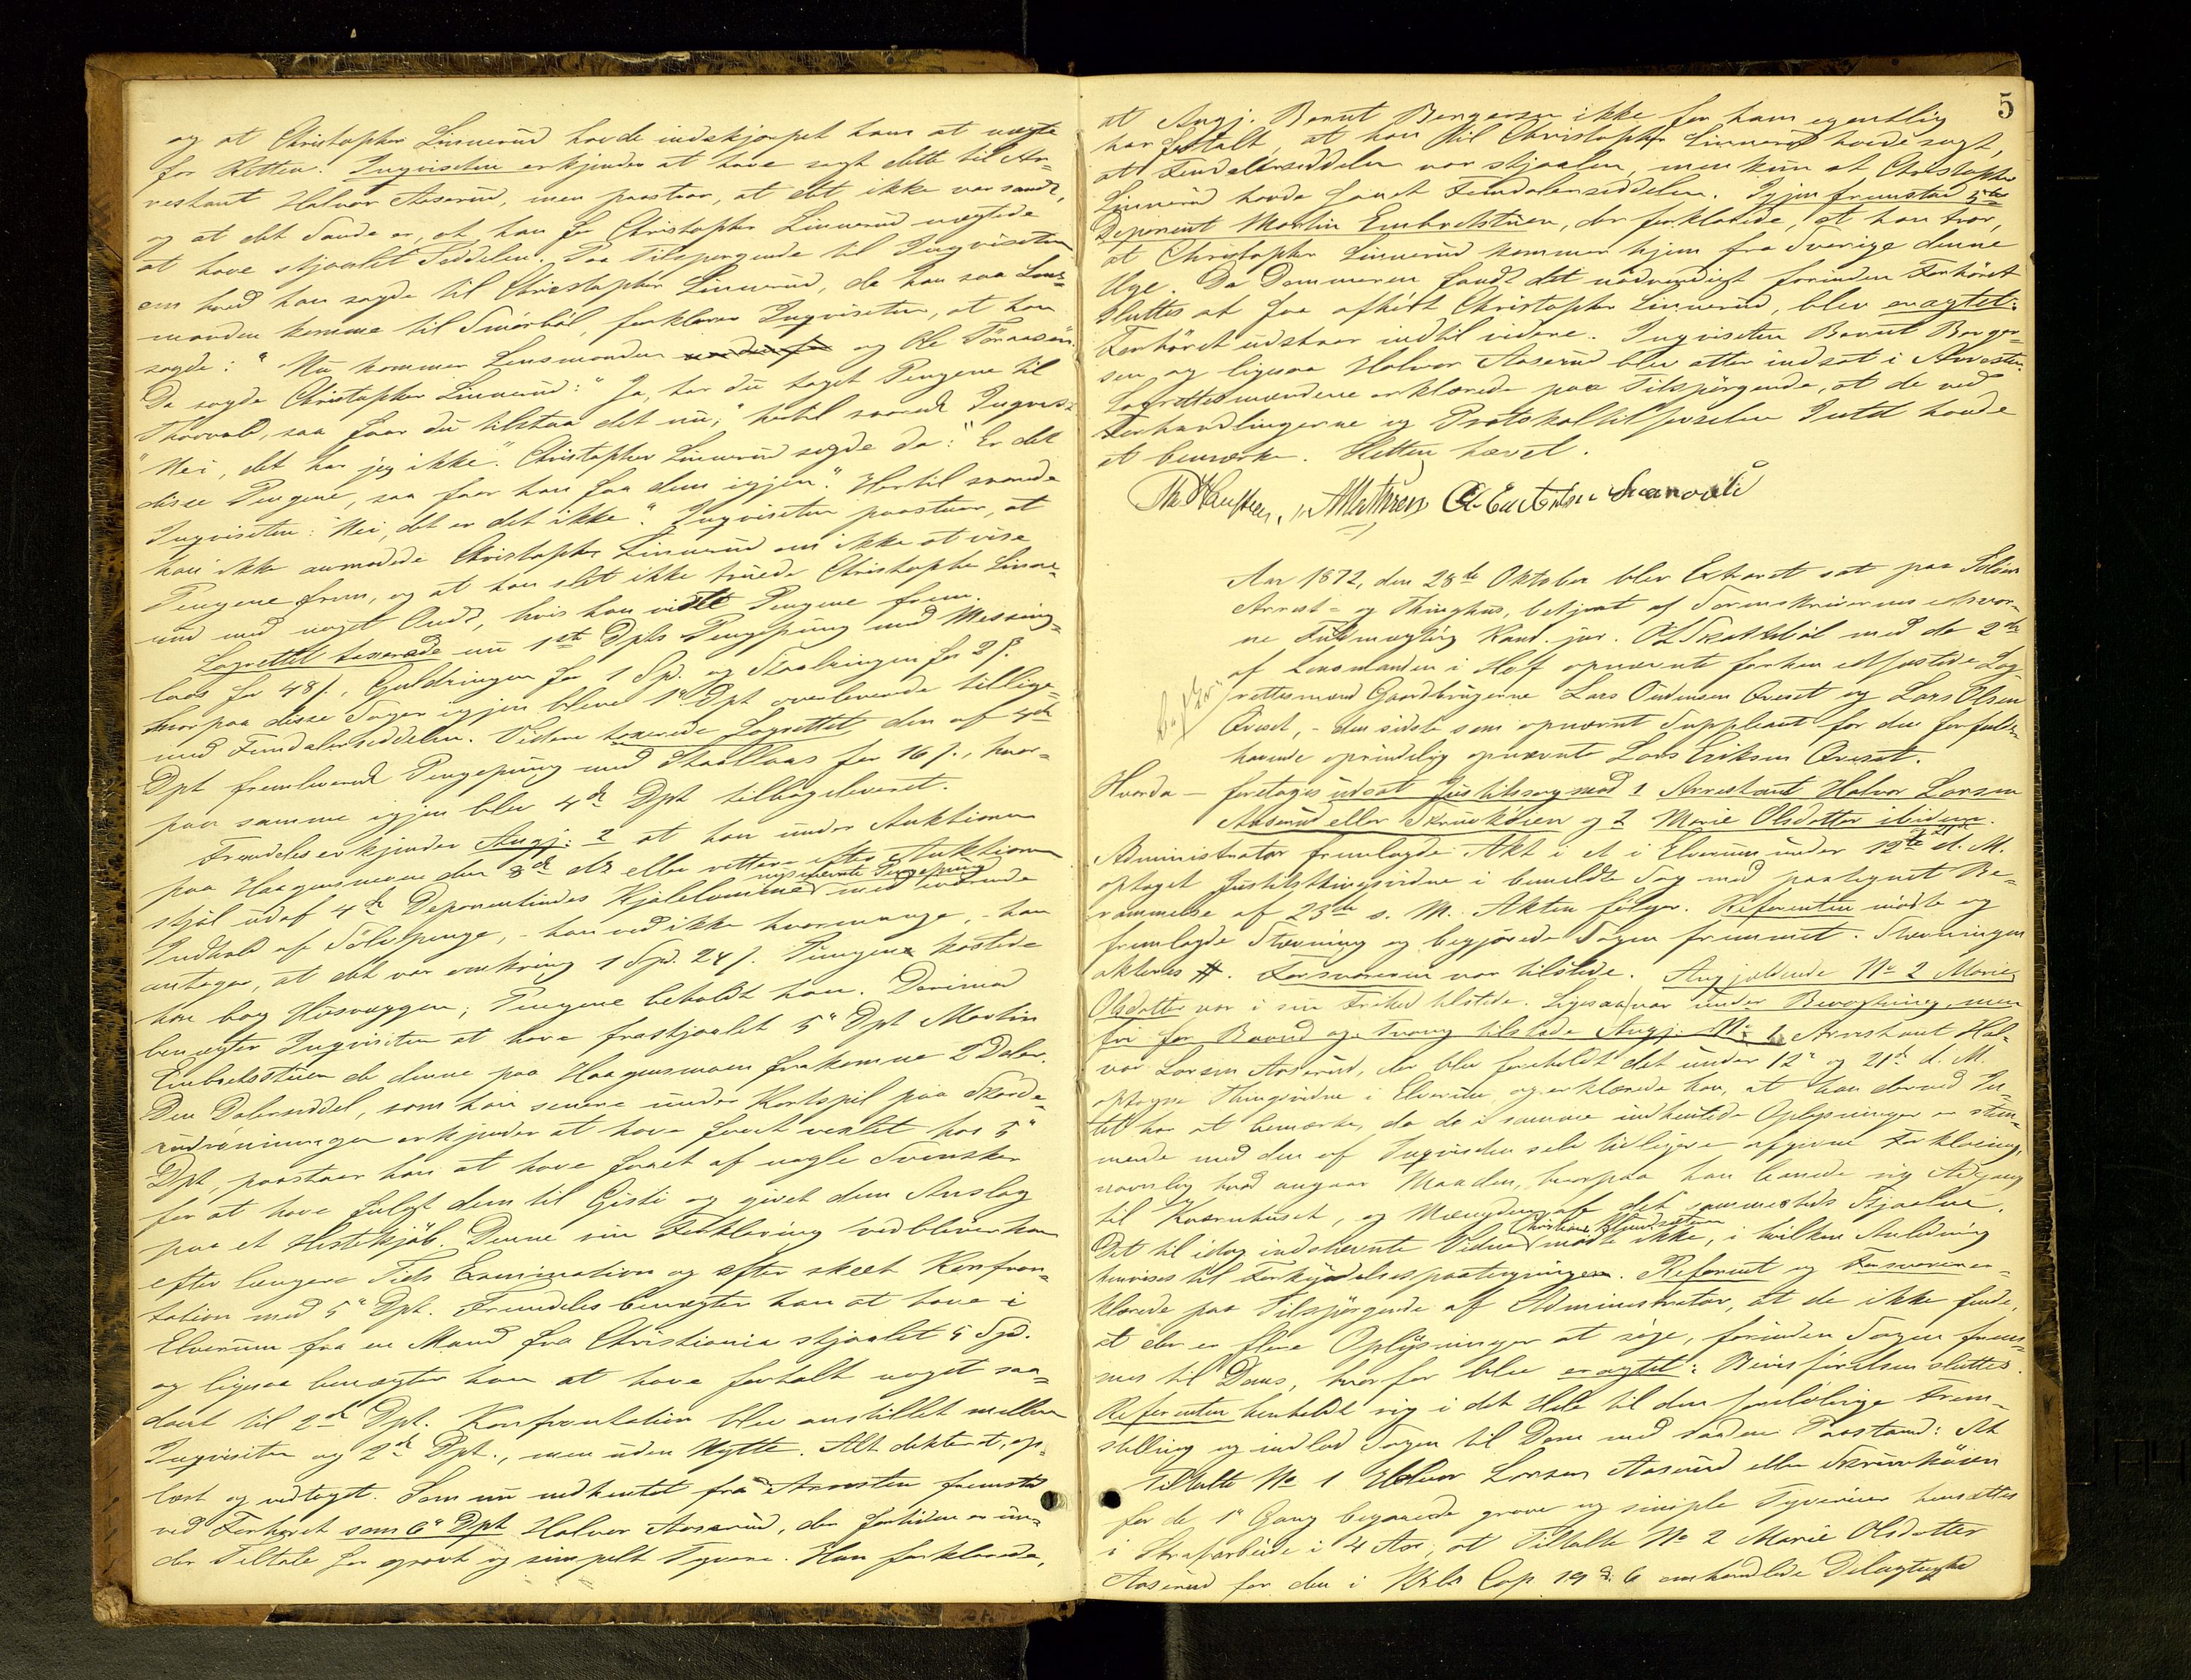 og at Christopher Linnerud havde indskjærpet ham at nægte
for Retten. Inqvisiten erkjender at have sagt dette til Ar-
restant Halvor Aaserud, men paastaar, at det ikke var sandt,
og at det Sande er, at han for Christopher Linnerud nægtede
at have stjaalet Seddelen. Paa Tilspørgende til Inqvisiten
om hvad han sagde til Christopher Linnerud, da han saa Lens-
manden komme til Smørhøl, forklarer Inqvisiten, at han
sagde: "Nu kommer Lensmanden og Ole
Da sagde Christopher Linnerud: "Ja, har du taget Pengene til
Thorvald, saa faar du tilstaa det nu," hertil svarede Inqvis:
"Nei, det har jeg ikke." Christopher Linnerud sagde da: "Er det
disse Pengene, saa faar han faa dem igjen". Hertil svarede
Inqvisiten: "Nei, det er det ikke". Inqvisiten paastaar, at
han ikke anmodede Christopher Linnerud om ikke at vise
Pengene frem, og at han slet ikke truede Christopher Linne-
rud med noget Ondt, hvis han viste Pengene frem.
Lagrettet taxerede nu 1ste Dpts Pengepung med Messing-
laas for 48 s., Guldringen for 1 Spd. og Staalringen for 2 s.
hvorpaa disse Sager igjen bleve 1ste Dpt overleverede tillige-
med Femdalerseddelen. Videre taxerede Lagrettet den af 4de
Dpt fremleverede Pengepung med Staallaas for 16 s., hvor-
paa samme igjen blev 4de Dpt tilbageleveret.
Fremdeles erkjender Angj: 2 at han under Auktionen
paa Haagensmoen den 8de ds eller rettere efter Auktionen
stjal udaf 4de Deponentindes Kjolelomme nysnævnte Pengepung med iværende
Indhold af Sølvpenge, - han ved ikke hvormange, - han
antager, at det var omkring 1 Spd. 24 s. Pungen kastede
han bag Husvæggen; Pengene beholdt han. Derimod
benægter Inqvisiten at have frastjaalet 5te Dpt Martin
Embretsstuen de denne paa Haagensmoen frakomne 2 Daler.
Den Dalerseddel, som han senere under Kortspil paa Skarde-
rudsrønningen erkjender at have faaet vexlet hos 5te
Dpt, paastaar han at have faaet af nogle Svensker
for at have fulgt dem til Gjesti og givet dem Anslag
paa et Hestekjøb. Denne sin Forklaring vedbliver han
efter længere Tids Examination og efter skeet Konfron-
tation med 5te Dpt. Fremdeles benægter han at have i
Elverum fra en Mand fra Christiania stjaalet 5 Spd.
og ligesaa benægter han at have fortalt noget saa-
dant til 2den Dpt. Konfrontation blev anstillet mellem
Inqvisiten og 2den Dpt., men uden Nytte. Alt dikteret, op-
læst og vedtaget. Som nu indhentet fra Arresten fremstod
ved Forhøret som 6te Dpt Halvor Aaserud, der fortiden er un-
der Tiltale for grovt og simpelt Tyveri. Han forklarede,
5
at Angj. Bernt Bergersen ikke for ham egentlig
har fortalt, at han til Christopher Linnerud havde sagt,
at Femdalerseddelen var stjaalen, men kun at Christopher
Linnerud havde faaet Femdalerseddelen. Igjen fremstod 5te
Deponent Martin Embretstuen, der forklarede, at han tror,
at Christopher Linnerud kommer hjem fra Sverige denne
Uge. Da Dommeren fandt det nødvendigt forinden Forhøret
sluttes at faa afhørt Christopher Linnerud, blev eragtet:
Forhøret udstaar indtil videre. Inqvisiten Bernt Berger-
sen og ligesaa Halvor Aaserud blev atter indsat i Arresten.
Lagrettesmændene erklærede paa Tilspørgende, at de ved
Forhandlingerne og Protokoltilførselen Intet havde
at bemærke. Retten hævet.
Aar 1872, den 28de Oktober blev Extraret sat paa
Arrest- og Thinghus, betjent af Sorenskriverens edsvor-
ne Fuldmægtig Kand. jur. med de 2de
af Lensmanden i Hof opnævnte forhen edfæstede Lag-
rettesmænd Gaardbrugerne Lars Gudmunsen Qveset og Lars Olsen
Qveset, - den sidste som opnævnt Suppleant for den forfald-
havende oprindelig opnævnte Lars Eriksen Qveset.
Hvorda - foretoges udsat Justitssag mod 1 Arrestant Halvor Larsen
Aaserud eller Skruvkøien og 2 Marie Olsdatter ibidem.
Administrator fremlagde Akt i et i Elverum under 12te & 21de d. M.
optaget Justitsthingsvidne i bemeldte Sag med paategnet Be-
rammelse af 23de s. M. Akten følger. Referenten mødte og
fremlagde Stevning og begjærede Sagen fremmet. Stevningen
akteres #. Forsvareren var tilstede. Angjældende No 2 Marie
Olsdatter var i sin Frihed tilstede. Ligesaa var under Bevogtning, men
fri for Baand og Tvang tilstede Angj. No 1 Arrestant Hal-
vor Larsen Aaserud, der blev foreholdt det under 12te og 21de d. M.
optagne Thingsvidne i Elverum, og erklærede han, at han derved In-
tet har at bemærke, da de i samme indhentede Oplysninger er stem-
mende med den af Inqvisiten selv tidligere afgivne Forklaring,
navnlig hvad angaar Maaden, hvorpaa han banede sig Adgang
til Kværnhuset, og Mængden af det sammesteds Stjaalne.
Det til idag indstevnte Vidne Christian mødte ikke, i hvilken Anledning
henvises til Forkyndelsespaategningen. Referent og Forsvarer er-
klærede paa Tilspørgende af Administrator, at de ikke finde,
at der er flere Oplysninger at søge, forinden Sagen frem-
mes til Doms, hvorfor blev eragtet: Bevisførelsen sluttes.
Referenten henholdt sig i det Hele til den foreløbige Frem-
stilling og indlod Sagen til Dom med saadan Paastand: At
Tiltalte No 1 Halvor Larsen Aaserud eller Skruvkøien
for de 1ste Gang begaaede grove og simple Tyverier hensættes
i Strafarbeide i 4 Aar, at Tiltalte No 2 Marie Olsdatter
Aaserud for den i Krls Cap. 19 § 6 omhandlede Delagtighed